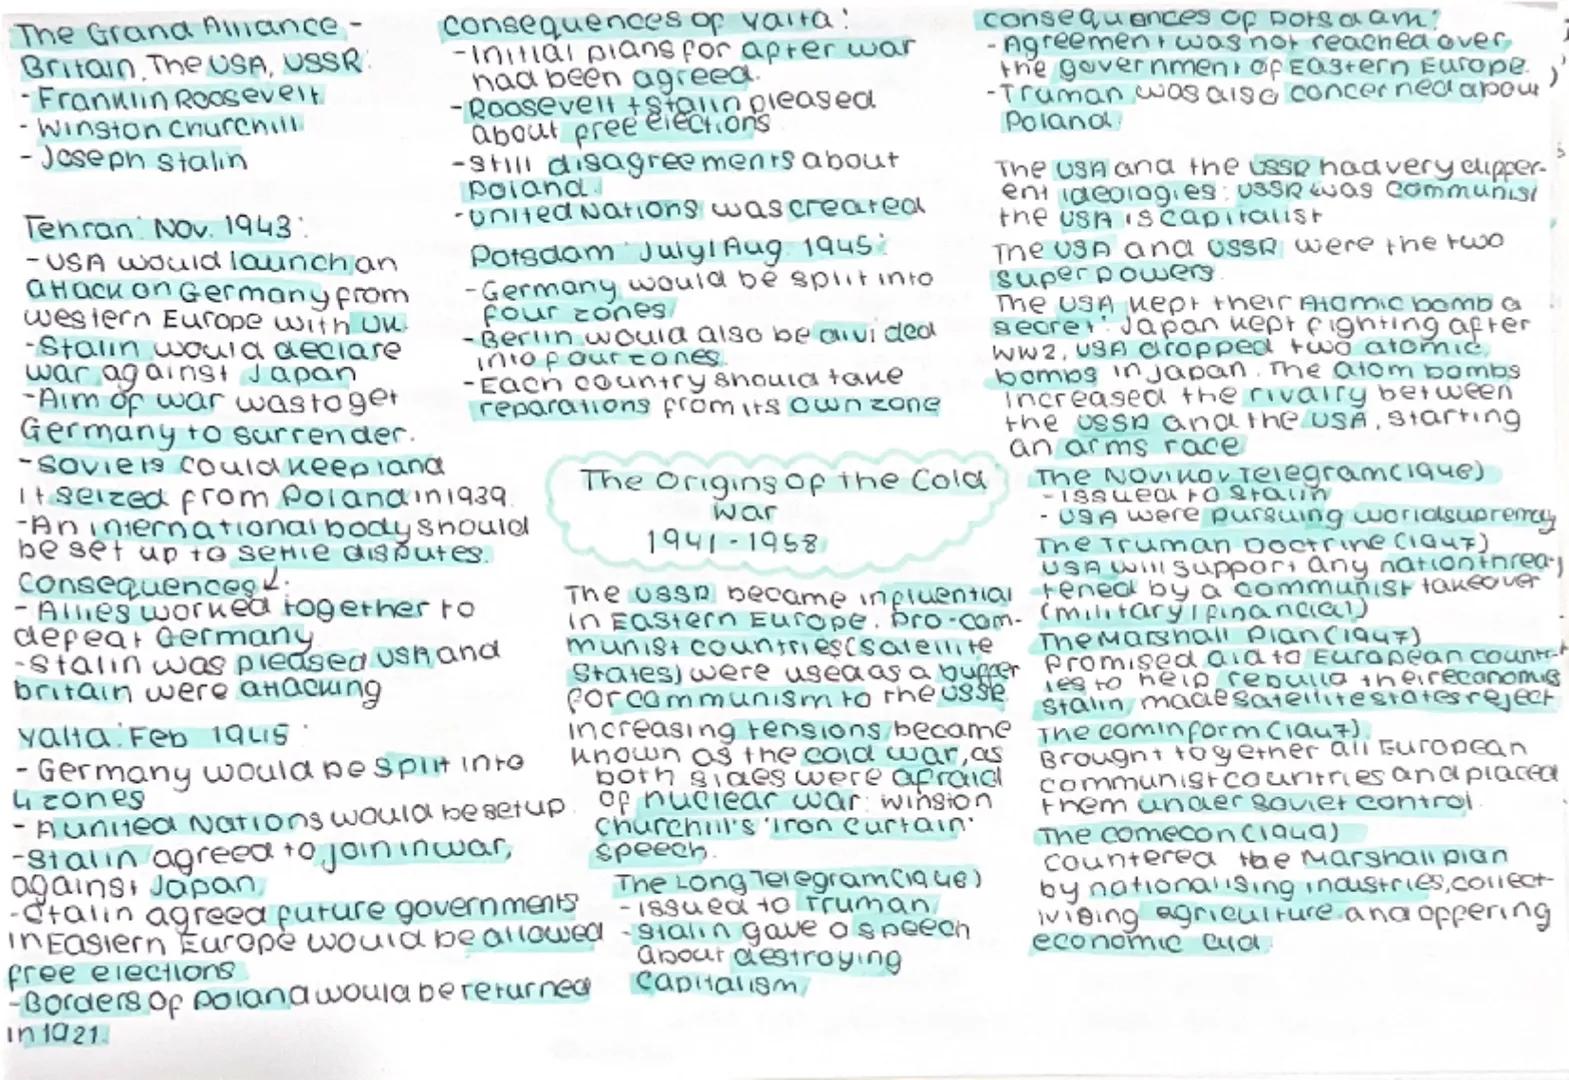 The Grand Alliance -
Britain, The USA, USSR:
- Franklin Roosevelt
- Winston Churchill
- Joseph Stalin
Tehran: Nov. 1943:
- USA would launch an
attack on Germany from
western Europe with UK.
- Stalin would declare
war against Japan
- Aim of war was to get
Germany to surrender.
- Soviets could keep land
it seized from Poland in 1939.
- An international body should
be set up to settle disputes.
Consequences ↓:
- Allies worked together to
defeat Germany
- Stalin was pleased USA and
britain were attacking
Yalta: Feb 1945
- Germany would be split into
4 zones
- A united Nations would be set up.
- Stalin agreed to join in war,
against Japan,
- Stalin agreed future governments
in Eastern Europe would be allowed
free elections
- Borders of Poland would be returned
in 1921.
consequences of Yalta:
- Initial plans for after war
had been agreed.
- Roosevelt + Stalin pleased
about free elections
- still disagreements about
Poland.
- united Nations was created
Potsdam: July/Aug. 1945:
- Germany would be split into
four zones
- Berlin would also be divided
into four zones.
- Each country should take
reparations from its own zone
The Origins of the Cold
War
1941-1958
The USSR became influential
in Eastern Europe. Pro-com-
munist countries (satellite
States) were used as a buffer
for communism to the USSR.
increasing tensions became
known as the cold war, as
both sides were afraid
of nuclear war: winston
Churchill's 'Iron Curtain'
speech.
The Long Telegram (1946)
- issued to Truman
- Stalin gave a speech
about destroying
capitalism
consequences of Potsdam:
- Agreement was not reached over
the government of Eastern Europe.
- Truman was also concerned about
Poland.
The USA and the USSR had very differ-
ent ideologies: USSR was Communist
the USA is capitalist
The USA and USSR were the two
Superpowers.
The USA kept their Atomic bomb a
secret: Japan kept fighting after
WW2, USA dropped two atomic
bombs in Japan. The atom bombs
increased the rivalry between
the USSR and the USA, starting
an arms race
The Novikov Telegram (1946)
- issued to Stalin
- USA were pursuing world supremacy
The Truman Doctrine (1947)
USA will support any nation threa-
tened by a communist takeover
(military/financial)
The Marshall Plan (1947)
promised aid to European countr-
ies to help rebuild their economies
Stalin made satellite states reject
The cominform (1947)
Brought together all European
communist countries and placed
them under Soviet control.
The comecon (1949)
countered the Marshall plan
by nationalising industries, collect-
ivising agriculture and offering
economic aid